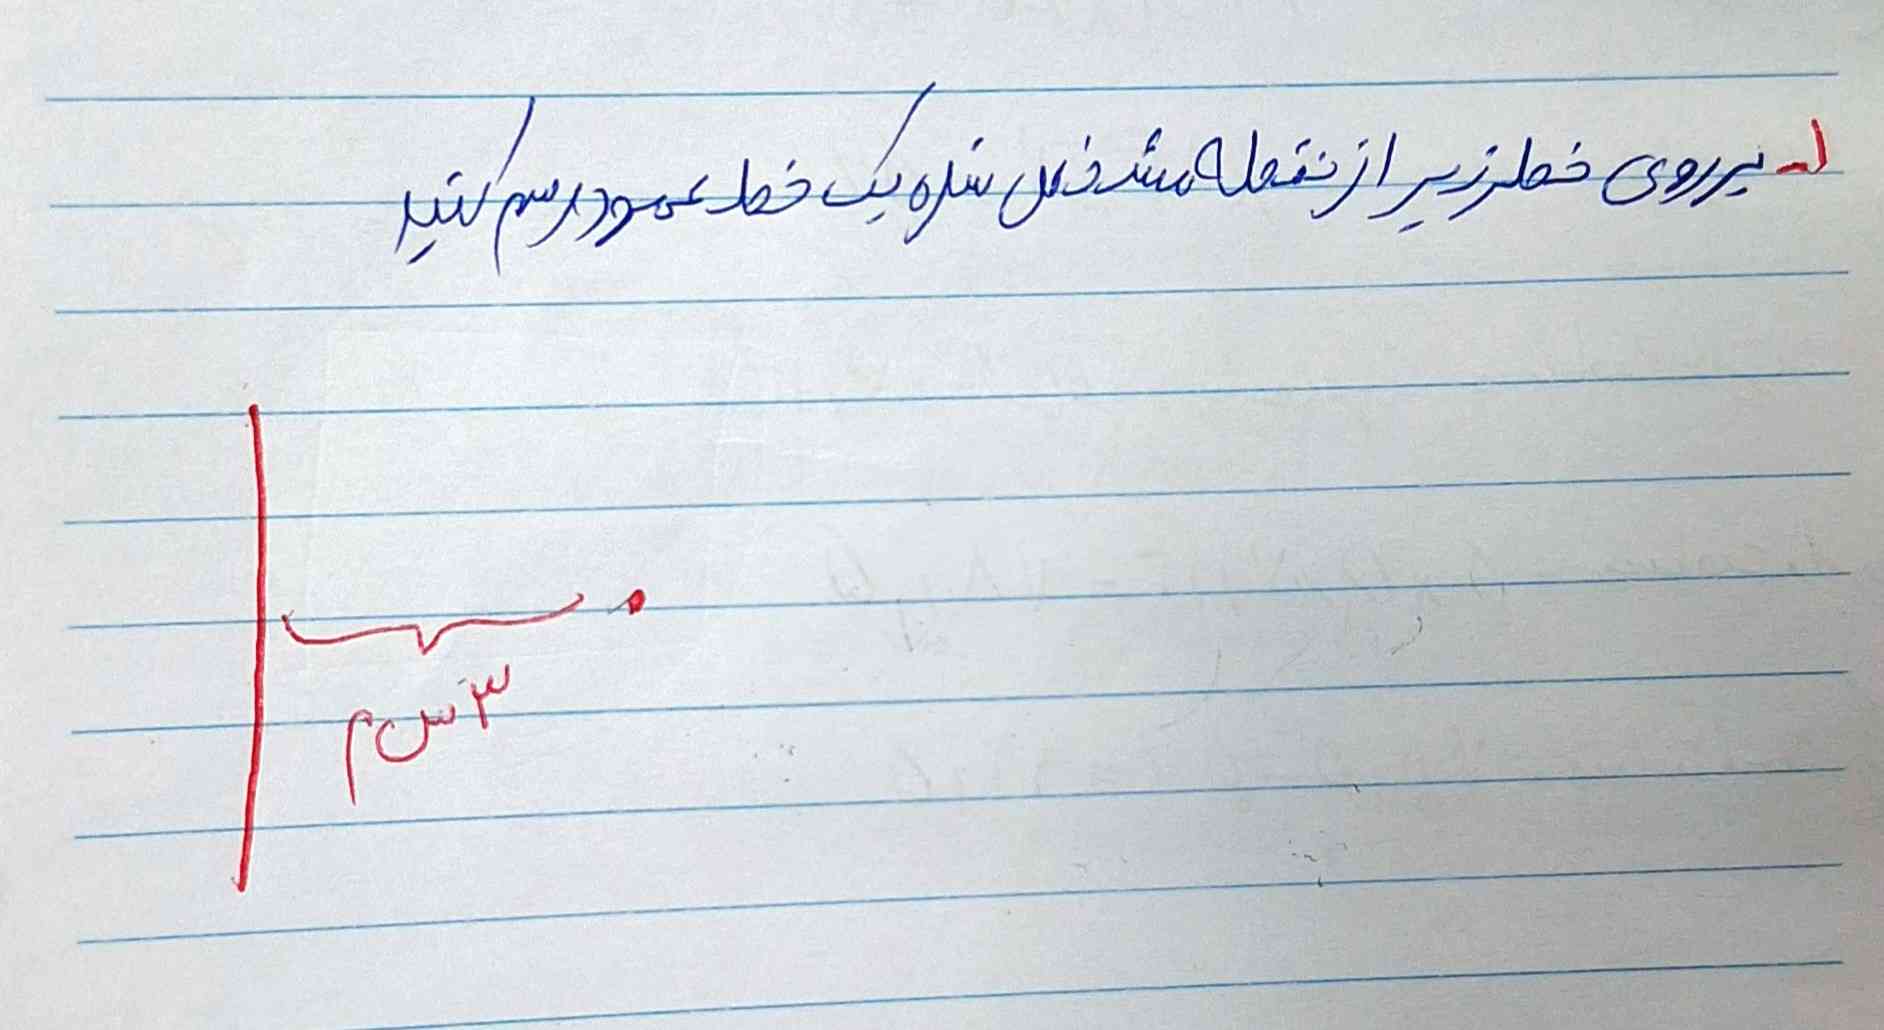 ل- برروی خط زیر از نقطه مشخص شده یک خط عمود رسم کنید
۳ س م